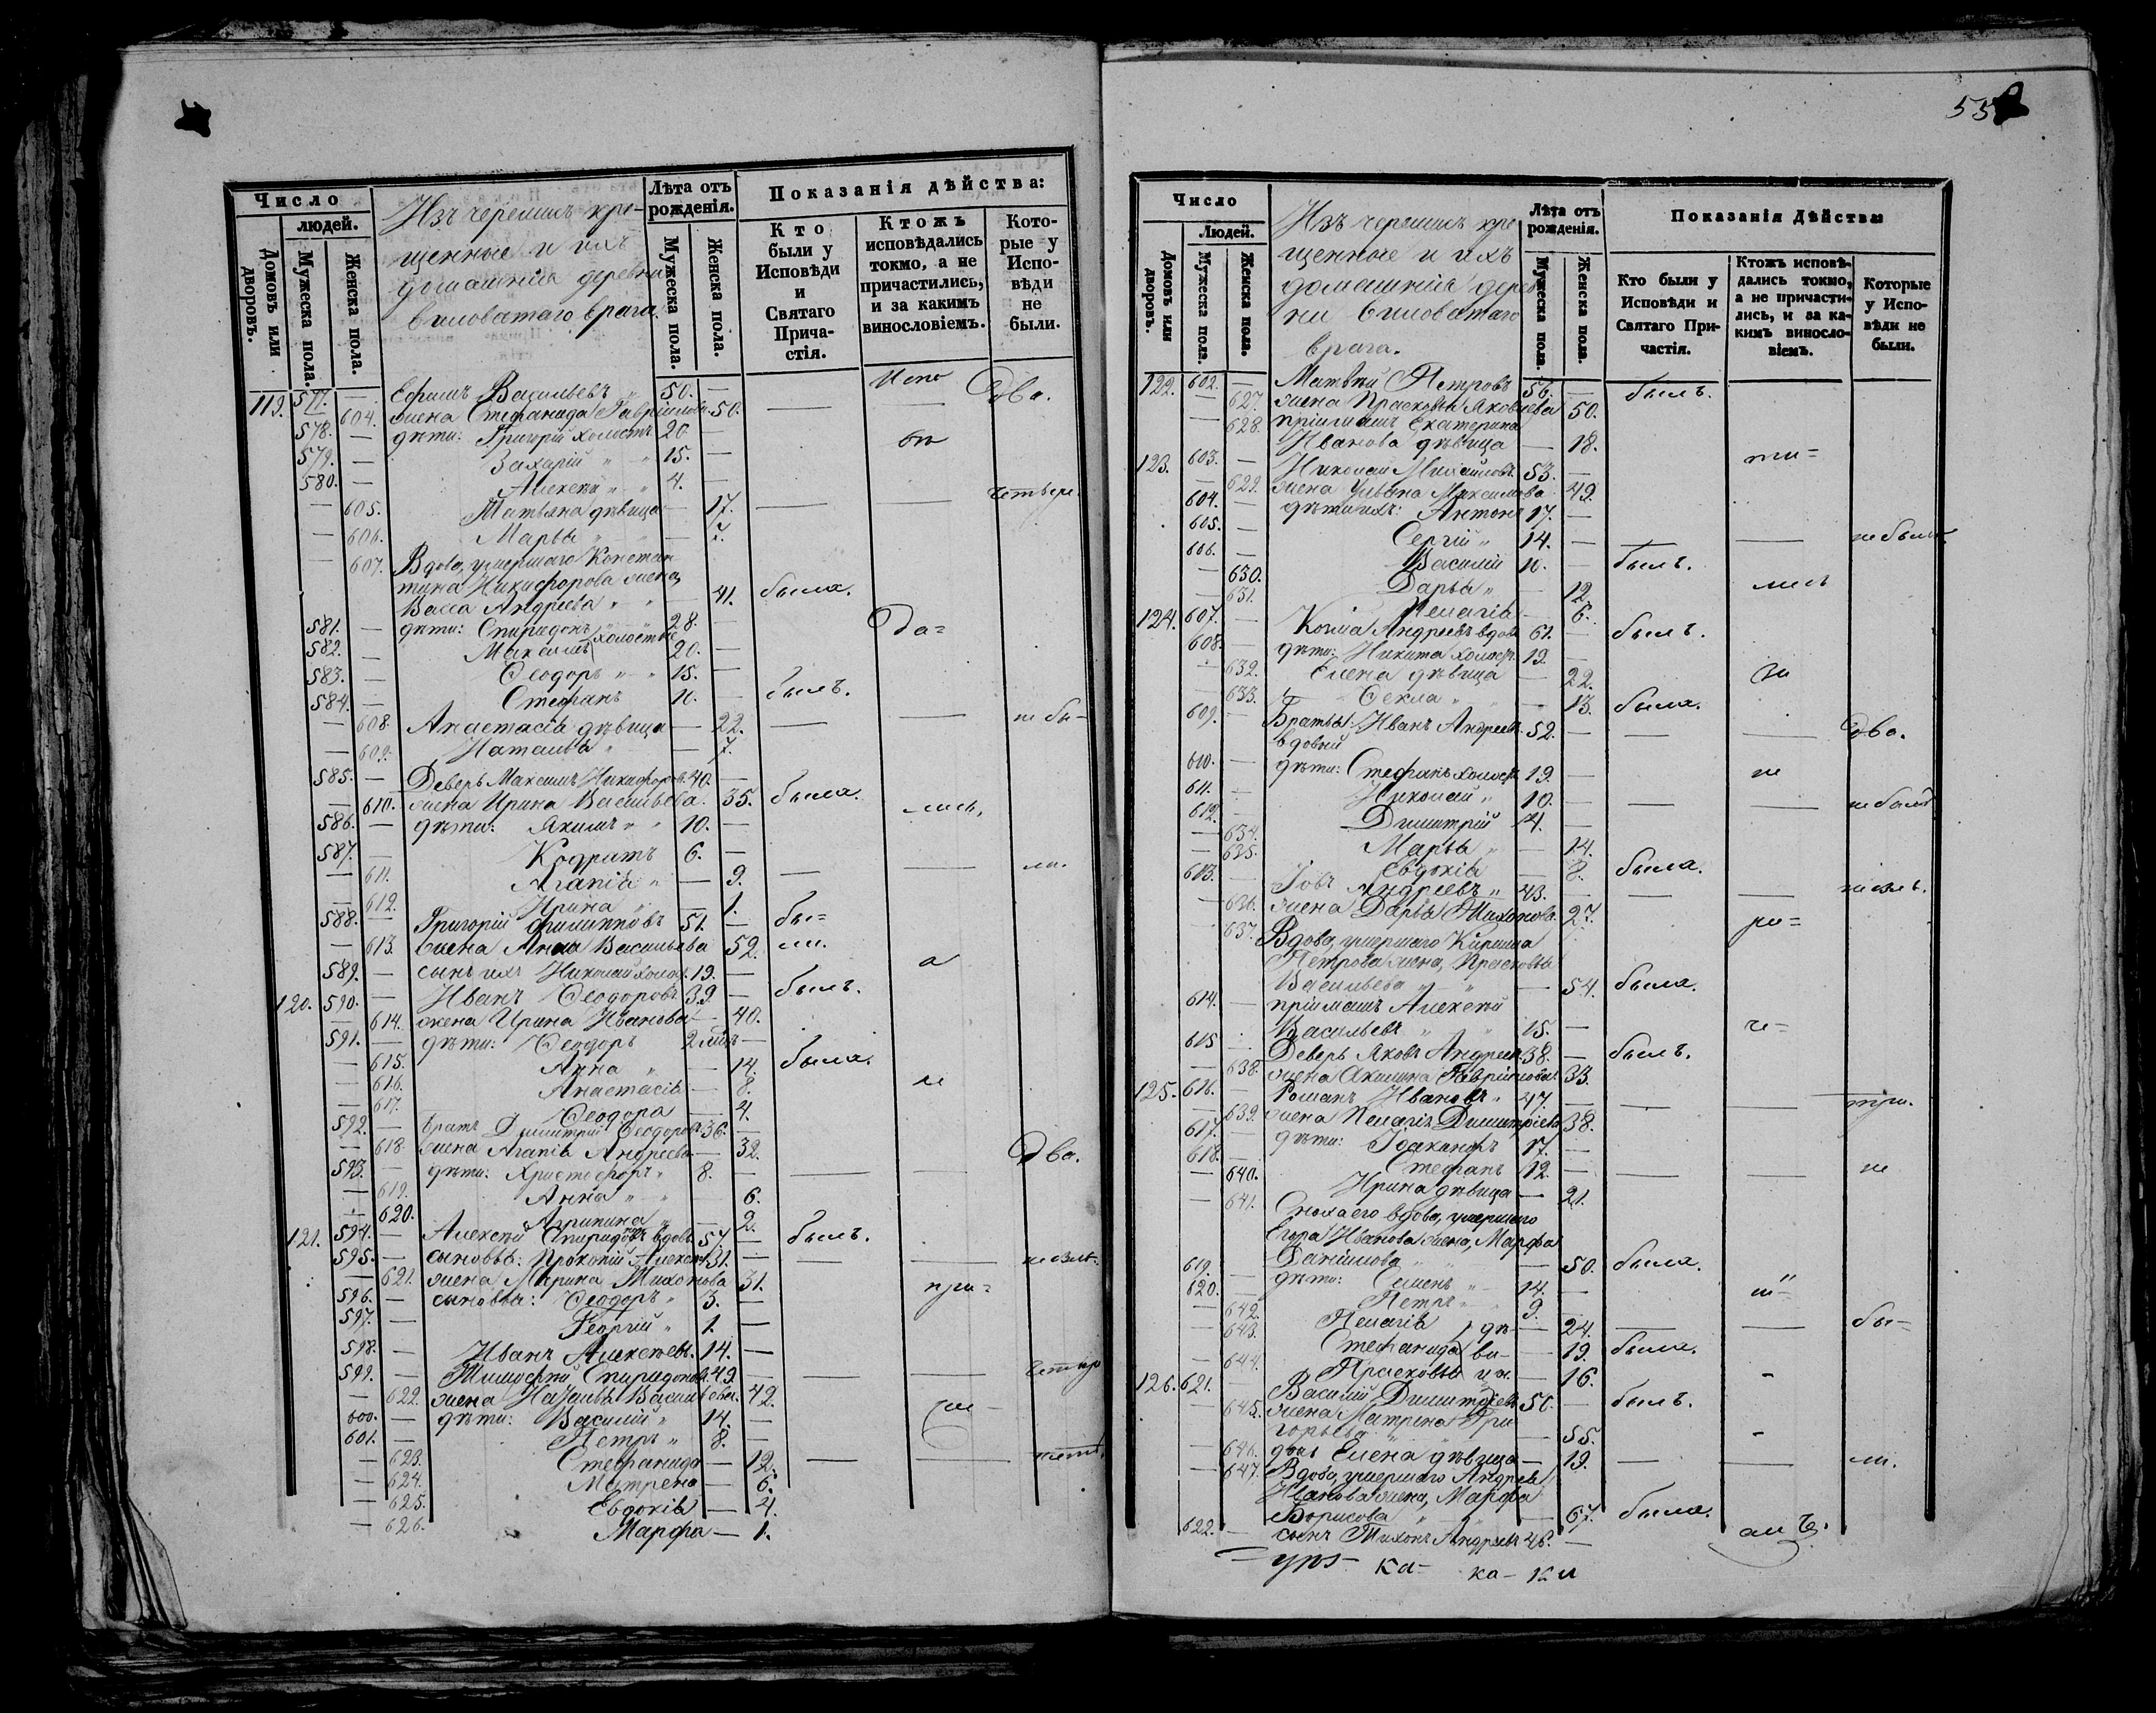 Число
людей.
Домовъ или дворовъ.
Мужеска пола.
Женска пола.
Изъ черемисъ кре-
щенные и ихъ
домашнія деревни
Виловатаго врага.
Лѣта отъ
рожденія.
Мужеска пола.
Женска пола.
Показанія дѣйства:
Кто
были у
Исповѣди
и
Святаго
Прича-
стія.
Ктожъ
исповѣдались
токмо, а не
причастились,
и за какимъ
винословіемъ.
Кото-
рые у
Испо-
вѣди
не
были.
119. 577. — Ефимъ Васильевъ " 50. —
— 604. жена Стефанида Гавріилова 50. — — Два.
578. — дѣти: Григорій холостъ 20 —
579. — Захарій " " 15. —
580. — Алексѣй " " 4. —
— 605. Татьяна дѣвица — 17. — —
— 606. Марья " " —
— 607. Вдова, умершаго Констан
тина Никифорова жена,
Васса Андреева " " — 41. была.
581. — дѣти: Спиридонъ 28. — Да=
582. — Максимъ холостые 20. —
583. — Ѳеодоръ " " 15. —
584. — Стефанъ 10. — былъ.
— 608. Анастасія дѣвица — 22. — — не бы-
— 609. Наталья " — 7.
585. — Деверь Максимъ Никифоровъ 40. —
— 610. жена Ирина Васильева. 35. была. лись,
586. — дѣти: Якимъ " " 10. —
587. — Кодратъ 6. —
— 611. Агапія " — 9. — — ли.
— 612. Ирина " — 1.
588. — Григорій Филипповъ 51. — бы=
— 613. жена Анна Васильева 52. ли.
589. — сынъ ихъ Николай холос. 19. — а
120. 590. — Иванъ Ѳеодоровъ 39. — былъ.
— 614. жена Ирина Иванова — 40.
591. — дѣти: Ѳеодоръ
— 615. Анна " — 14. была.
— 616. Анастасія — 8.
— 617. Ѳеодора — 4.
592. — братъ Димитрій Ѳеодоровъ 36. —
— 618. жена Агапія Андреева — 32. Два.
593. — дѣти: Христофоръ " 8. — — —
— 619. Анна " " 6.
— 620. Агрипина " — 2.
121. 594. — Алексѣй Спиридоновъ вдовъ 57. — былъ.
595. — сыновья: Прокопій Алексѣ. 31. — — —
— 621. жена Марина Тихонова 31. при=
596. — сыновья: Ѳеодоръ " 3. —
597. — Георгій " 1. —
598. — Иванъ Алексѣевъ. 14. —
599. — Тимофей Спиридоновъ 49. — — —
— 622. жена Наталья Васильева. 42.
600. — дѣти: Василій " 14. —
601. — Петръ " 8. —
— 623. Стефанида — 12. — —
— 624. Матрена — 6.
— 625. Евдокія — 4.
— 626. Марфа — 1.
Число
Людей.
Домовъ или дворовъ.
Мужеска пола.
Женска пола.
Изъ черемисъ кре
щенные и ихъ
домашнія дерев
ни Виловатаго
врага.
Лѣта отъ
рожденія.
Мужеска пола.
Женска пола.
Показанія Дѣйства:
Кто были у
Исповѣди и
Святаго При-
частія.
Ктожъ исповѣ-
дались токмо,
а не причасти-
лись, и за ка-
кимъ винослo-
віемъ.
Которые
у Испо-
вѣди не
были.
122. 602. — Матвѣй Петровъ 56. — былъ.
— 627. жена Прасковья Яковлева 50.
— 628. пріимышъ Екатерина
Иванова дѣвица — 18.
123. 603. — Николай Михайловъ 53. — ти=
— 629. жена Ульяна Максимова 49.
604. — дѣти ихъ: Антонъ 17. —
605. — Сергій " 14. — — — не были.
606. — Василій 10. — былъ.
— 630. Дарья " — 12. лись
— 631. Пелагія — 6.
124. 607. — Козма Андреевъ вдовъ 61. — былъ.
608. — дѣти: Никита холост. 19. —
— 632. Елена дѣвица — 22. за
— 633. Ѳекла " — 13. была.
609. — Братья: Иванъ Андреевъ 52. — — — два.
вдовый
610. — дѣти: Стефанъ холост. 19. — не
611. — Николай " 10. — — —
612. — Димитрій 4. —
— 634. Марья " — 14.
— 635. Евдокія — 8. была.
613. — Іовъ Андреевъ " 43. — — —
— 636. жена Дарья Тихонова 27. ро=
— 637. Вдова, умершаго Кирила
Петрова жена, Прасковья
Васильева " " — 54. была.
614. — пріимышъ Алексѣй
Васильевъ " " 15. — че=
615 — Деверь Яковъ Андреевъ 38. — былъ.
— 638. жена Акилина Гавріилова 33.
125. 616. — Романъ Ивановъ " 47. — — — три.
— 639. жена Пелагія Димитріева 38.
617. — дѣти: Іоакимъ 17. —
618. — Стефанъ 12. — — — не
— 640. Ирина дѣвица — 21.
— 641. Сноха его вдова, умершаго
Егора Иванова жена, Марфа
Даніилова " " — 50. была.
619. — дѣти: Семенъ " 14. —
620. — Петръ " 9. —
— 642. Пелагія дѣ — 24. — — бы=
— 643. Стефанида ви- — 19. была.
— 644. Прасковья цы. — 16.
126. 621. — Василій Димитріевъ 50. — былъ.
— 645. жена Матрена Гри
горьева — 55.
— 646. дочь Елена дѣвица — 19. — — ли.
— 647. Вдова, умершаго Андрея
Иванова жена, Марфа
Борисова " " — 67. была.
622. — сынъ Тихонъ Андреевъ 46. —